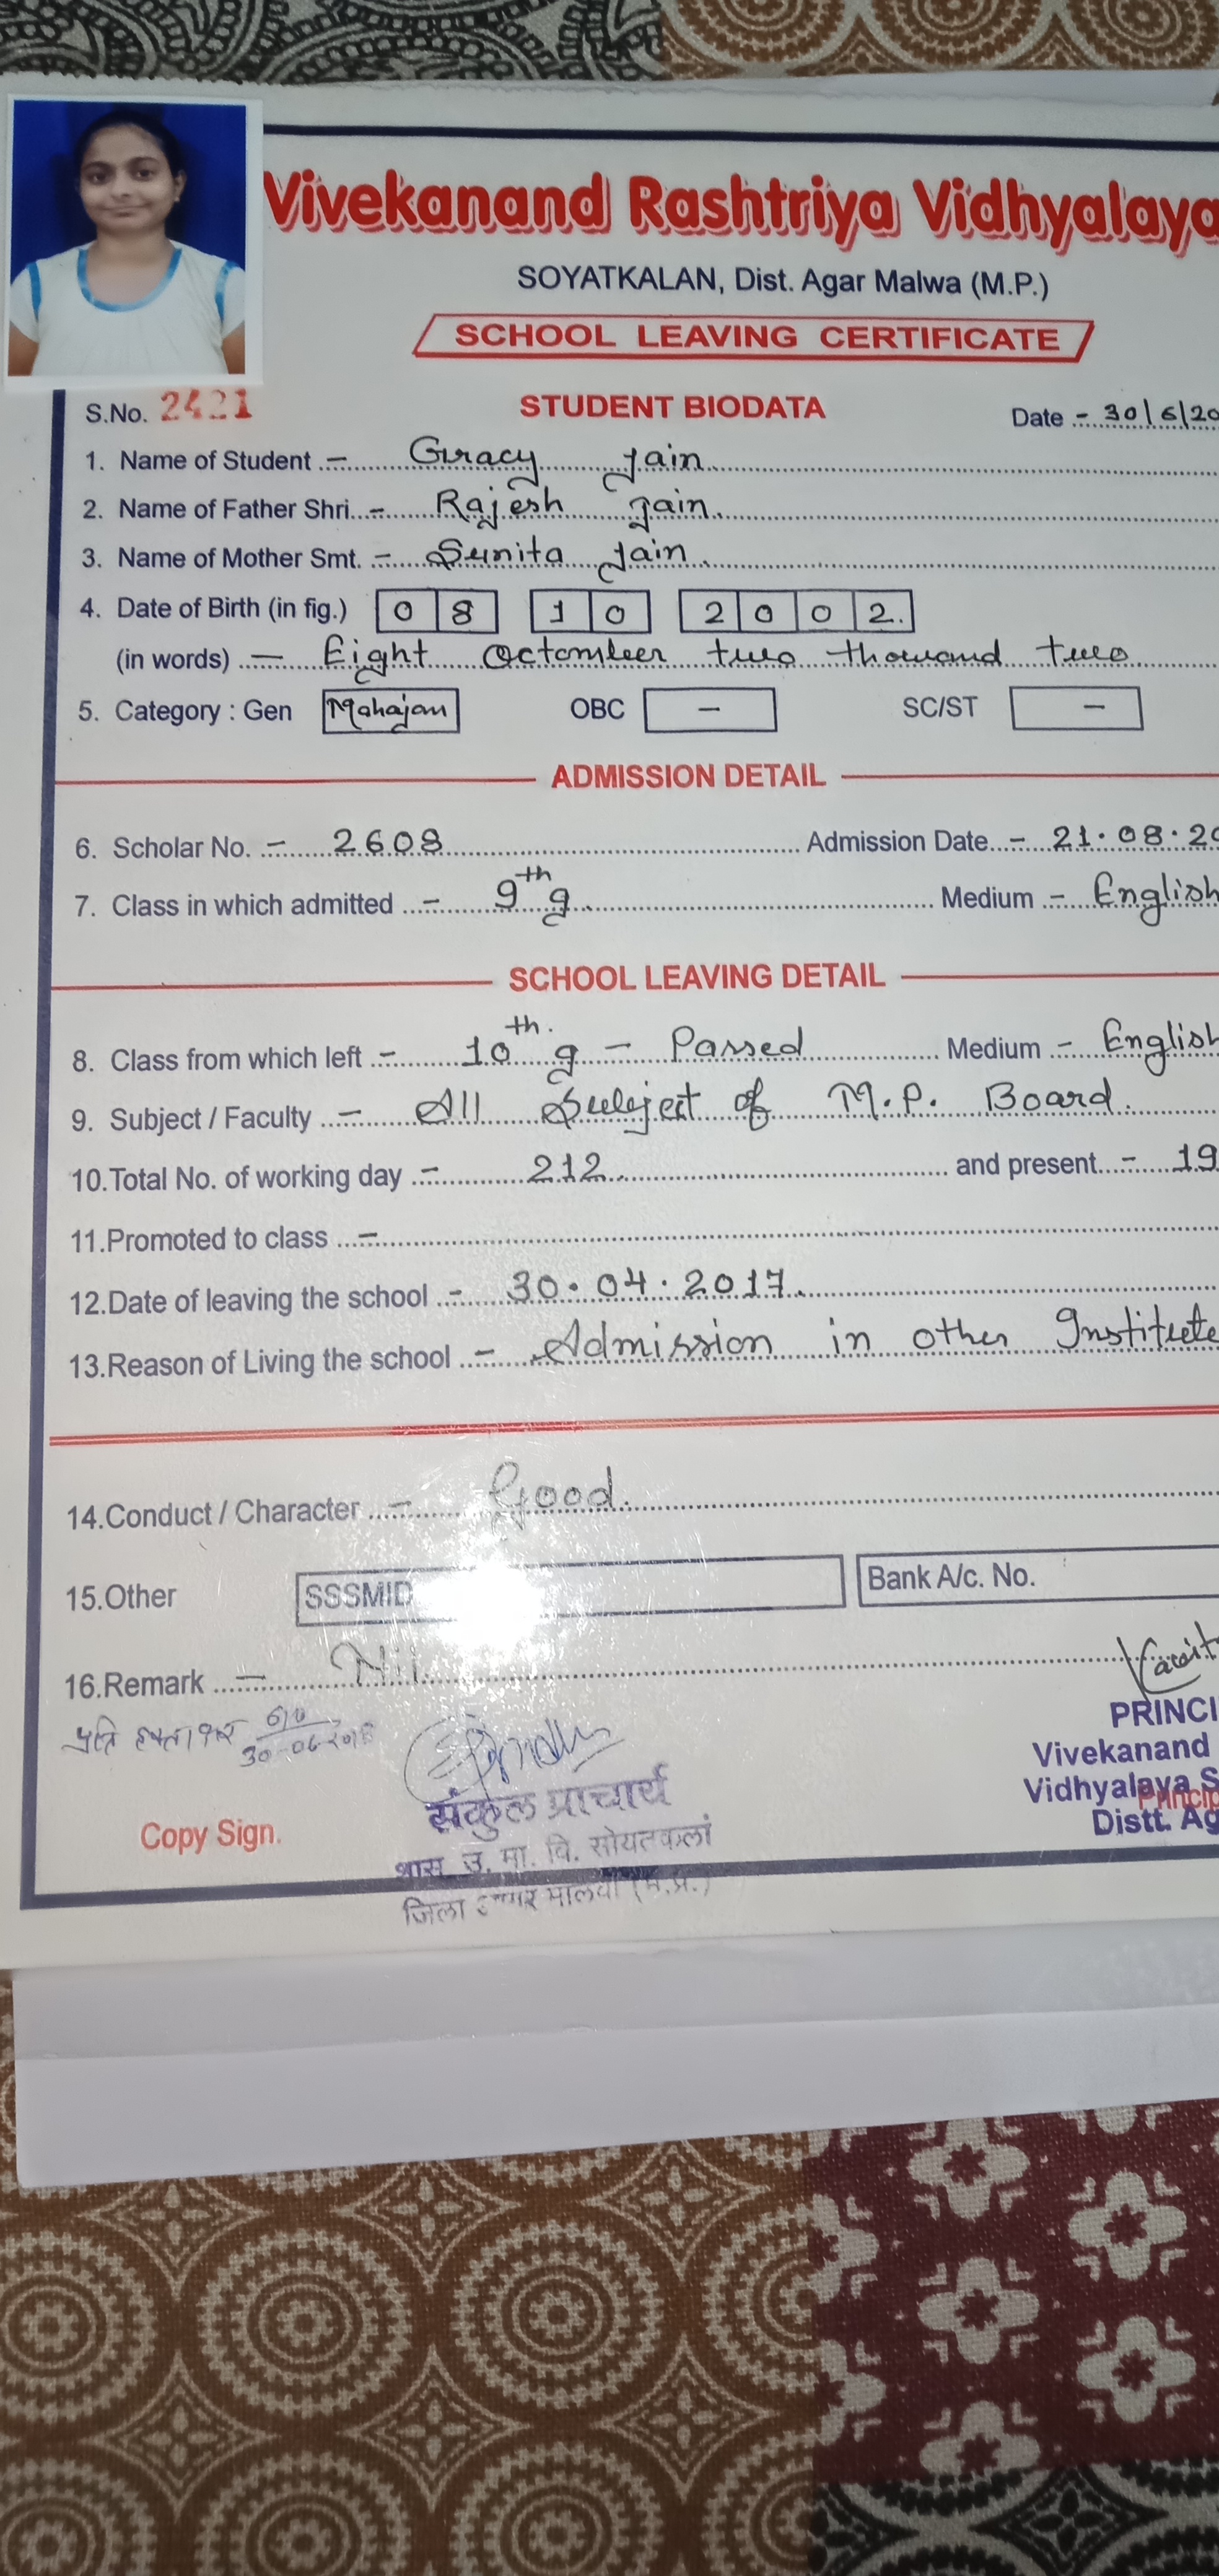 Vivekanand Rashtriya Vidhyalaya
SOYATKALAN, Dist. Agar Malwa (M.P.)
SCHOOL LEAVING CERTIFICATE
S.No. 2421 STUDENT BIODATA Date - 30/6/20
1. Name of Student - Guracy Jain
2. Name of Father Shri. - Rajesh Jain.
3. Name of Mother Smt. - Sunita Jain.
4. Date of Birth (in fig.) 08 10 2002.
(in words) - Eight Octomber two thousand two
5. Category : Gen Mahajan OBC - SC/ST -
ADMISSION DETAIL
6. Scholar No. - 2608 Admission Date - 21.08.20
7. Class in which admitted - 9th g. Medium - English
SCHOOL LEAVING DETAIL
8. Class from which left - 10th. g - Passed Medium - English
9. Subject / Faculty - All Subject of M.P. Board.
10.Total No. of working day - 212. and present - 19
11.Promoted to class -
12.Date of leaving the school - 30.04.2017.
13.Reason of Living the school - Admission in other Institute
14.Conduct / Character - Good.
15.Other SSSMID Bank A/c. No.
16.Remark - Nil
PRINCI
Vivekanand
Vidhyalaya S
Princip
Distt. Ag
संकुल प्राचार्य
Copy Sign.
शास. उ. मा. वि. सोयतकलां
जिला आगर मालवा (म.प्र.)